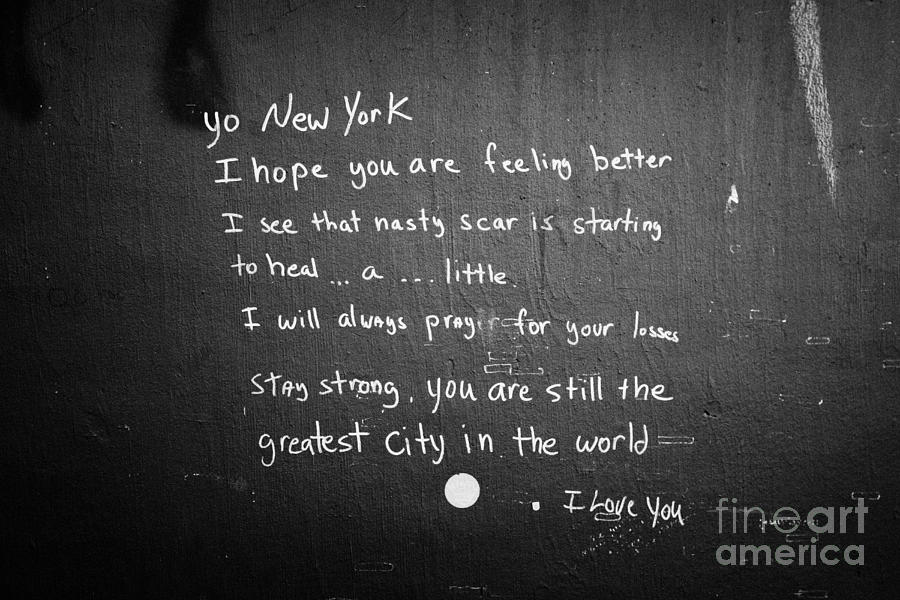 yo New York
I hope you are feeling better
I see that nasty scar is starting
to heal ... a ... little.
I will always pray for your losses
stay strong, you are still the
greatest city in the world
. I Love You
fineart
america